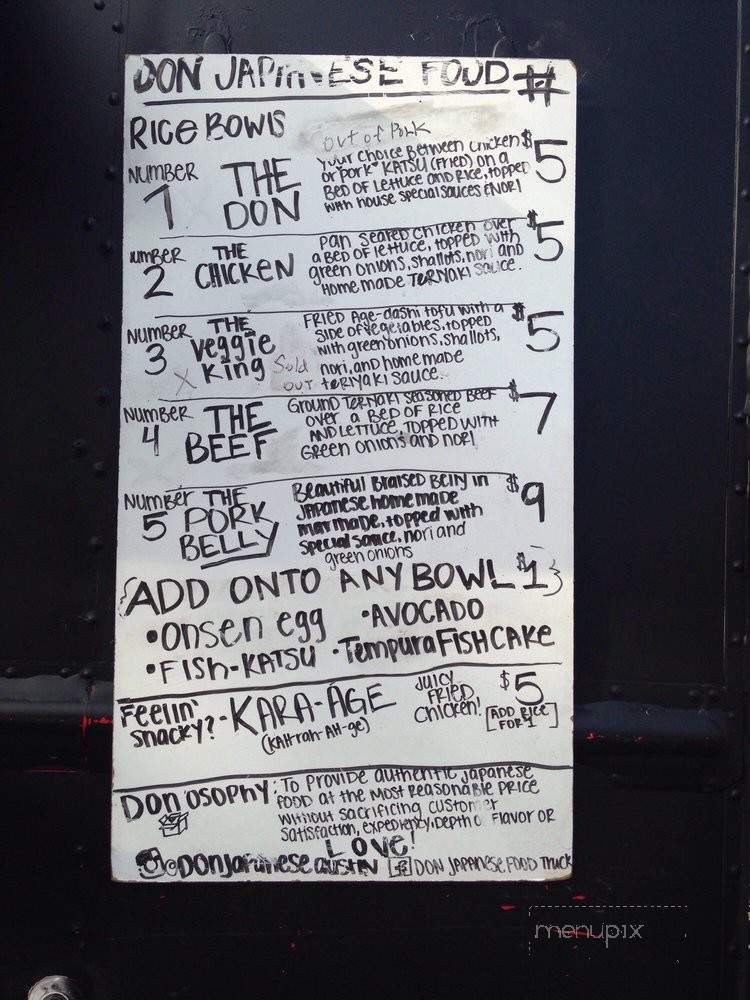 DON JAPANESE FOOD #
RICE BOWlS
out of Pork
NUMBER 1 THE DON
YOUR CHOICE BETWEEN CHICKEN $5
OR "PORK" KATSU (FRIED) ON A
BED OF LETTUCE AND RICE, TOPPED
WITH HOUSE SPECIAL SAUCES & NORI
UMBER 2 THE CHICKEN
PAN SEARED CHICKEN OVER $5
a BED OF lettuce, topped with
green onions, shallots, nori and
Home made TERIYAKI Sauce.
NUMBER 3 THE Veggie King
X Sold OUT
FRIED Age-dashi tofu with a $5
SIDE of vegetables, topped
with green onions, shallots,
nori, and home made
teRIYAKI sauce.
NUMBER 4 THE BEEF
GROUND TERIYAKI SEASONED BEEF $7
OVER a BED OF RICE
AND LETTUCE, TOPPED WITH
GREEN ONIONS AND NORI
NUMBER 5 THE PORK BELLY
Beautiful Braised Belly in $9
JAPANESE home made
marinade, topped with
special sauce, nori and
green onions
{ADD ONTO ANY BOWL $1}
•Onsen egg •AVOCADO
•FISH-KATSU •Tempura FISHCAKE
Feelin' snacky? - KARA-AGE
(KAH-rah-AH-ge)
JUICY FRIED Chicken! $5
[ADD RICE FOR 1]
Don'osophy: To provide authentic Japanese
FOOD at the MOST REASONABLE PRICE
without sacrificing customer
satisfaction, expediency, Depth o Flavor OR
LOVE!
@DONJapanese austin f DON JAPANESE FOOD TRUCK
menupix